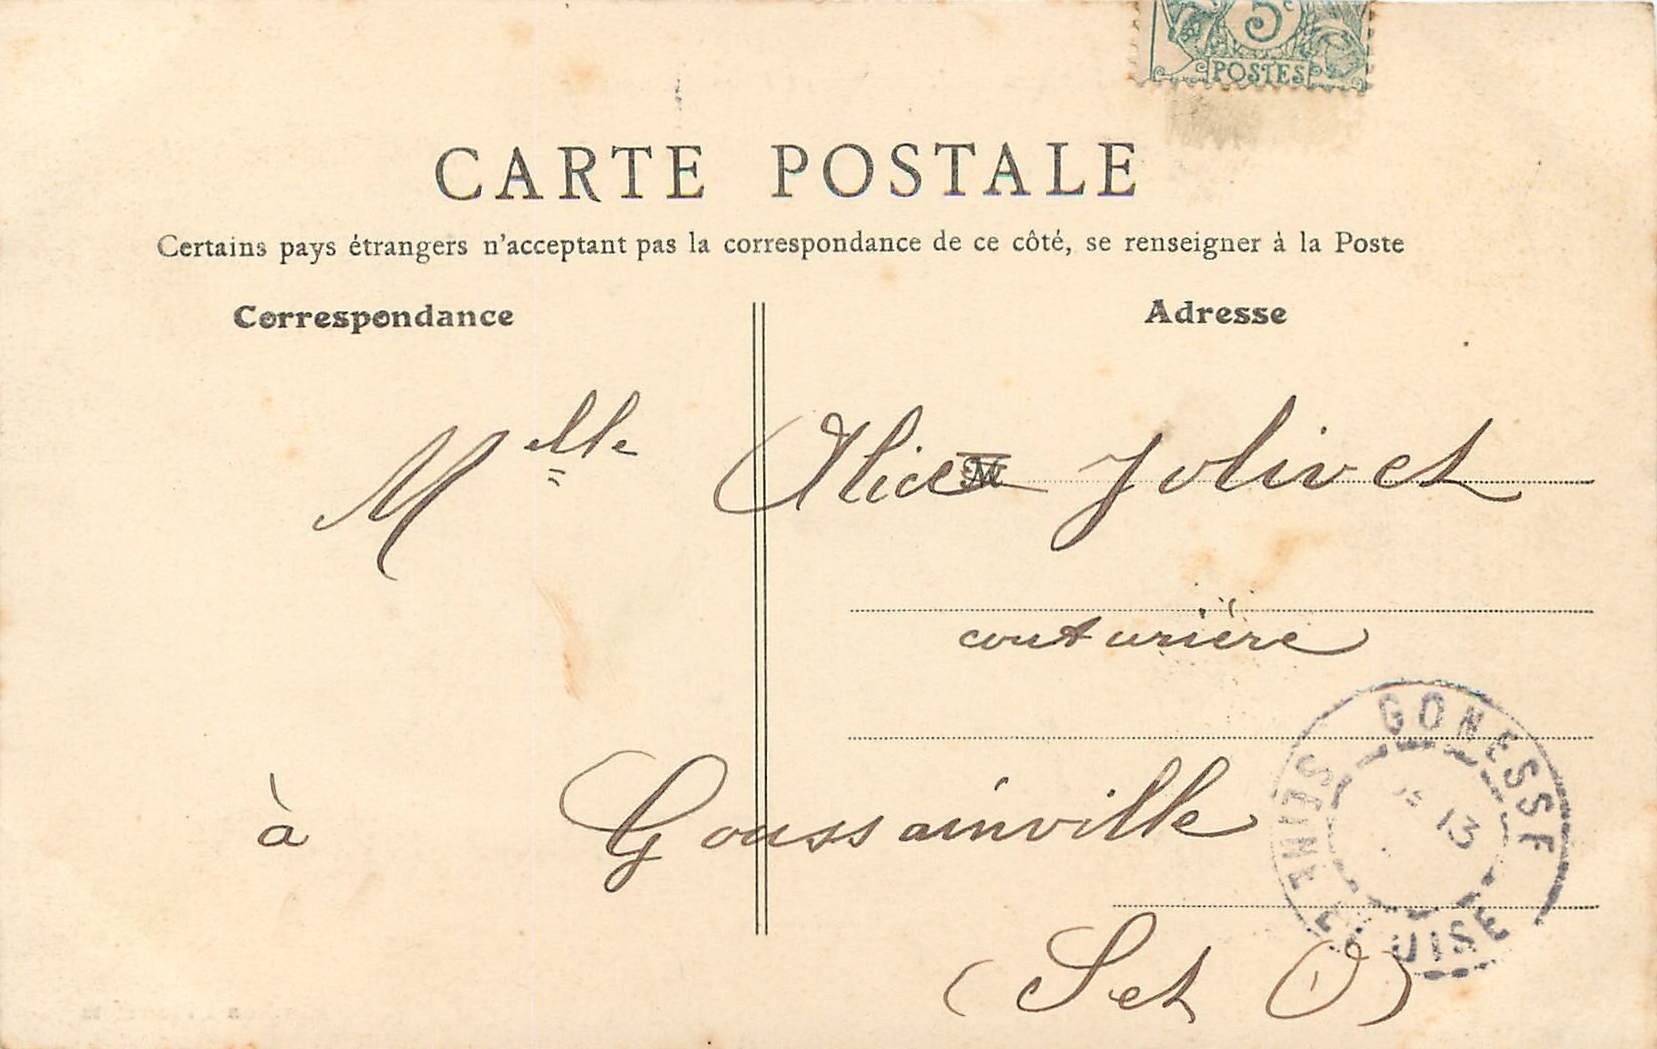 5c
POSTES
CARTE POSTALE
Certains pays étrangers n'acceptant pas la correspondance de ce côté, se renseigner à la Poste
Correspondance
Adresse
Melle Alice Jolivet
M
couturière
à Goussainville
(S et O)
GONESSE
13
SEINE ET OISE